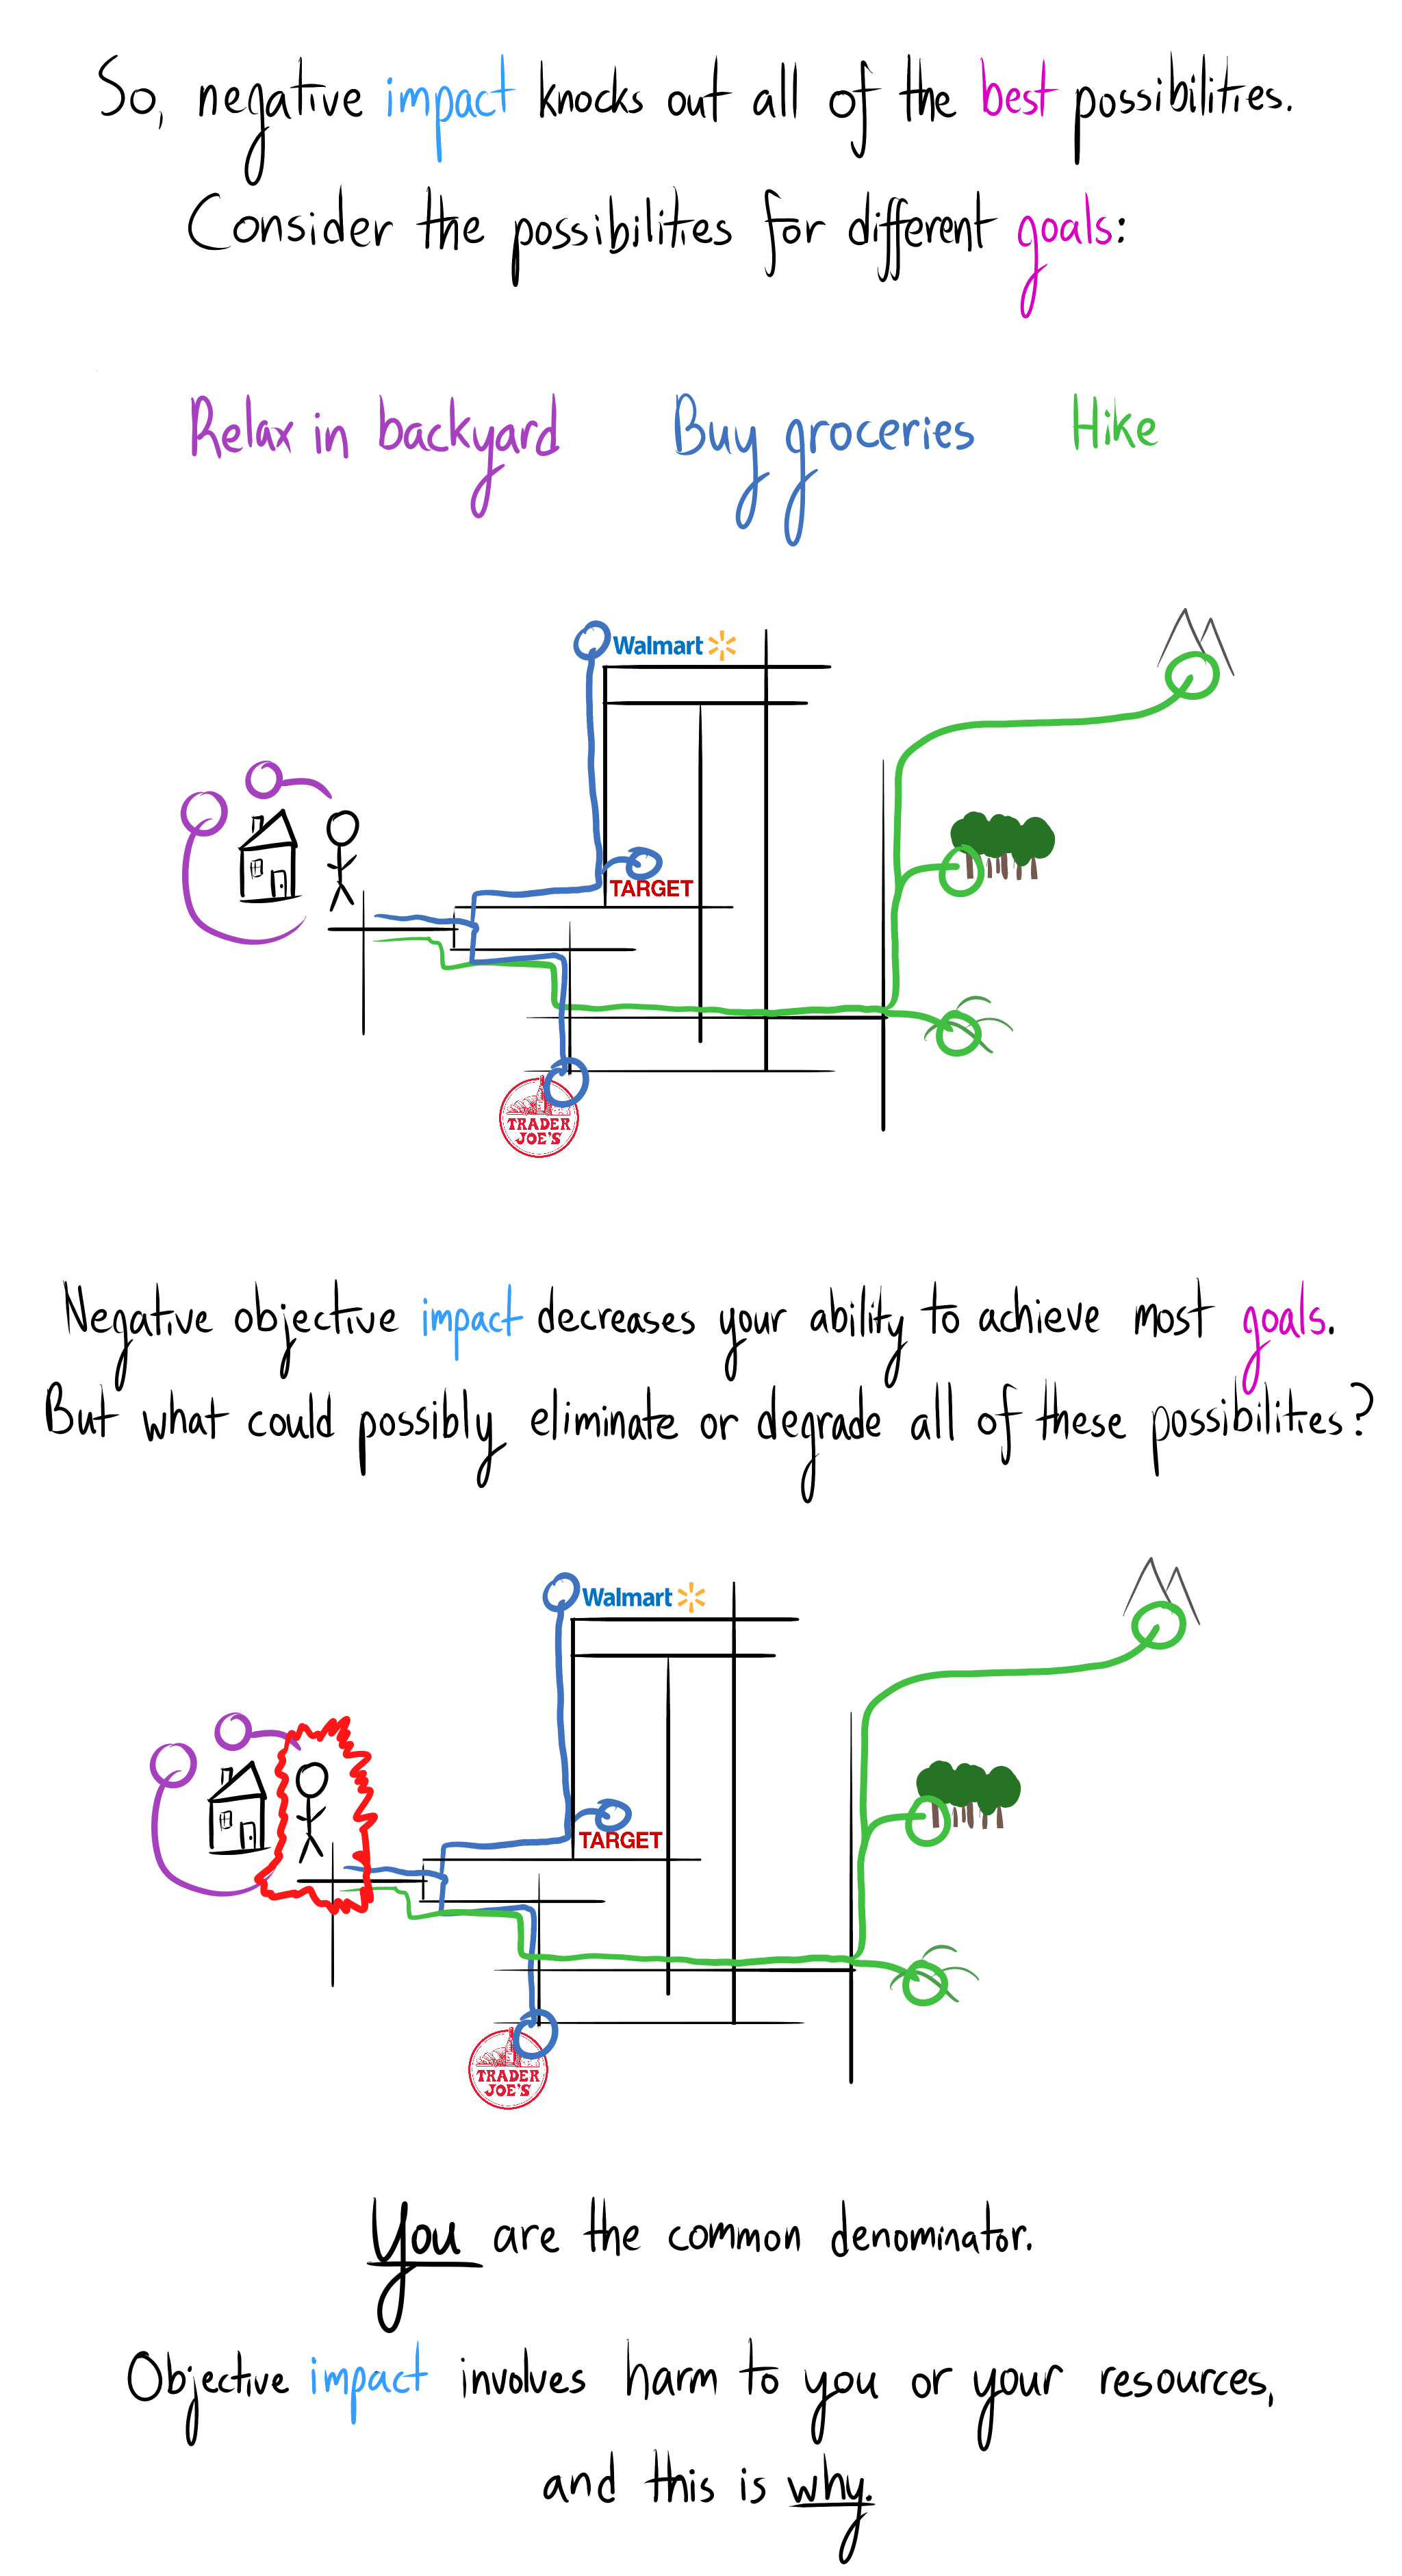 So, negative impact knocks out all of the best possibilities.
Consider the possibilities for different goals:
Relax in backyard Buy groceries Hike
Walmart
TARGET
TRADER
JOE'S
Negative objective impact decreases your ability to achieve most goals.
But what could possibly eliminate or degrade all of these possibilities?
Walmart
TARGET
TRADER
JOE'S
You are the common denominator.
Objective impact involves harm to you or your resources,
and this is why.